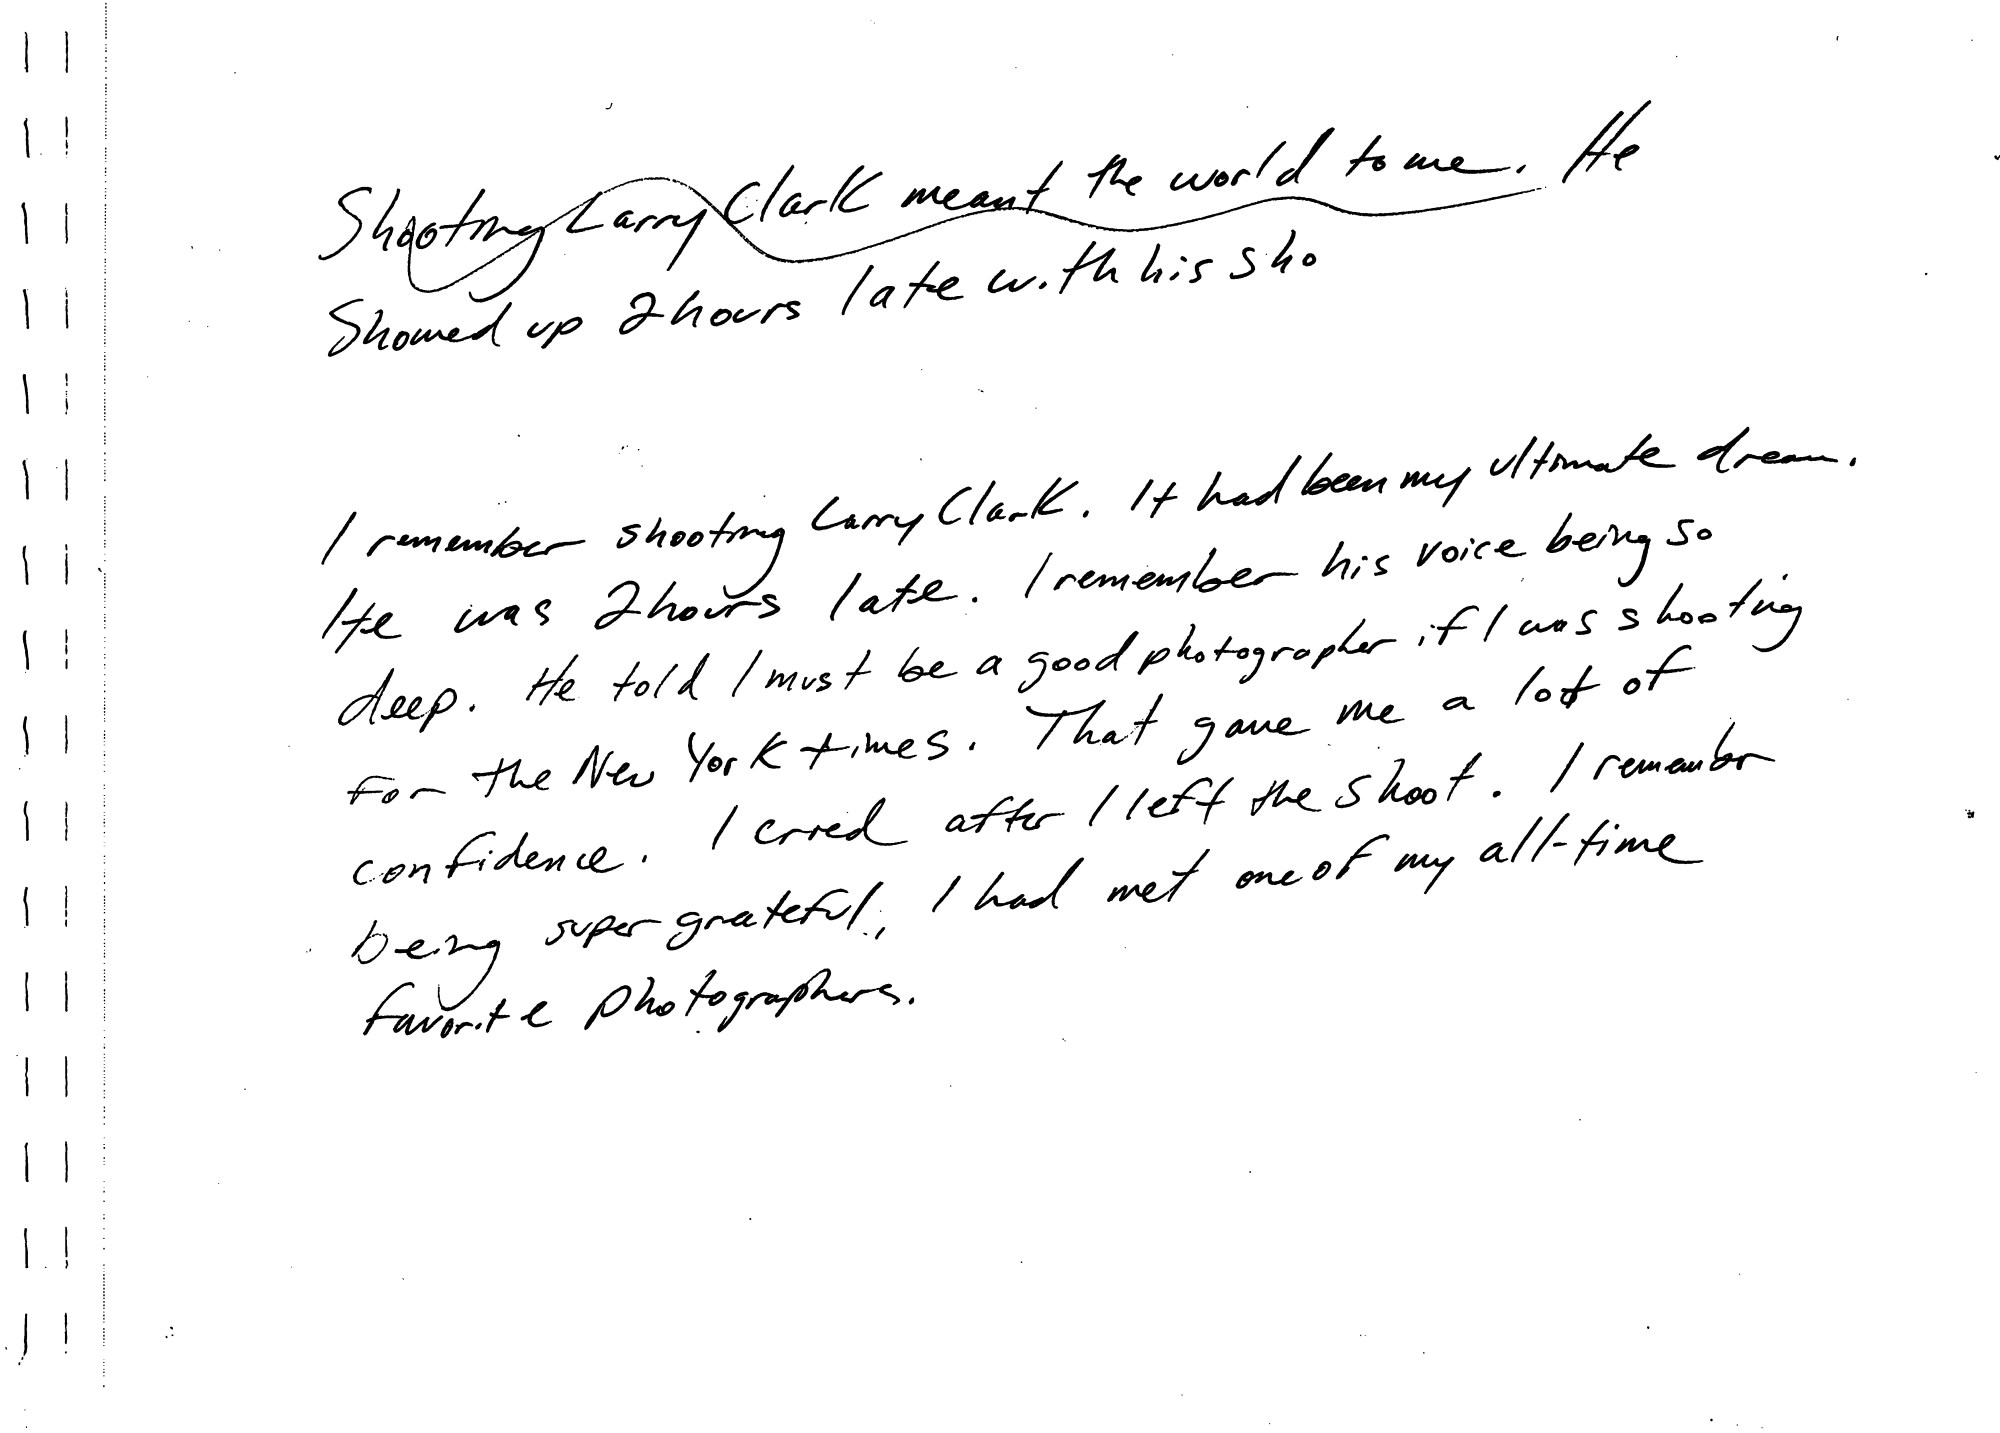 Shooting Larry Clark meant the world to me. He
Showed up 2 hours late with his sho
I remember shooting Larry Clark. It had been my ultimate dream.
He was 2 hours late. I remember his voice being so
deep. He told I must be a good photographer if I was shooting
for the New York times. That gave me a lot of
confidence. I cried after I left the shoot. I remember
being super grateful, I had met one of my all-time
favorite photographers.